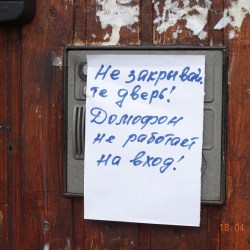 Не закривай-
те дверь!
Домофон
не работает
на вход!
18 04